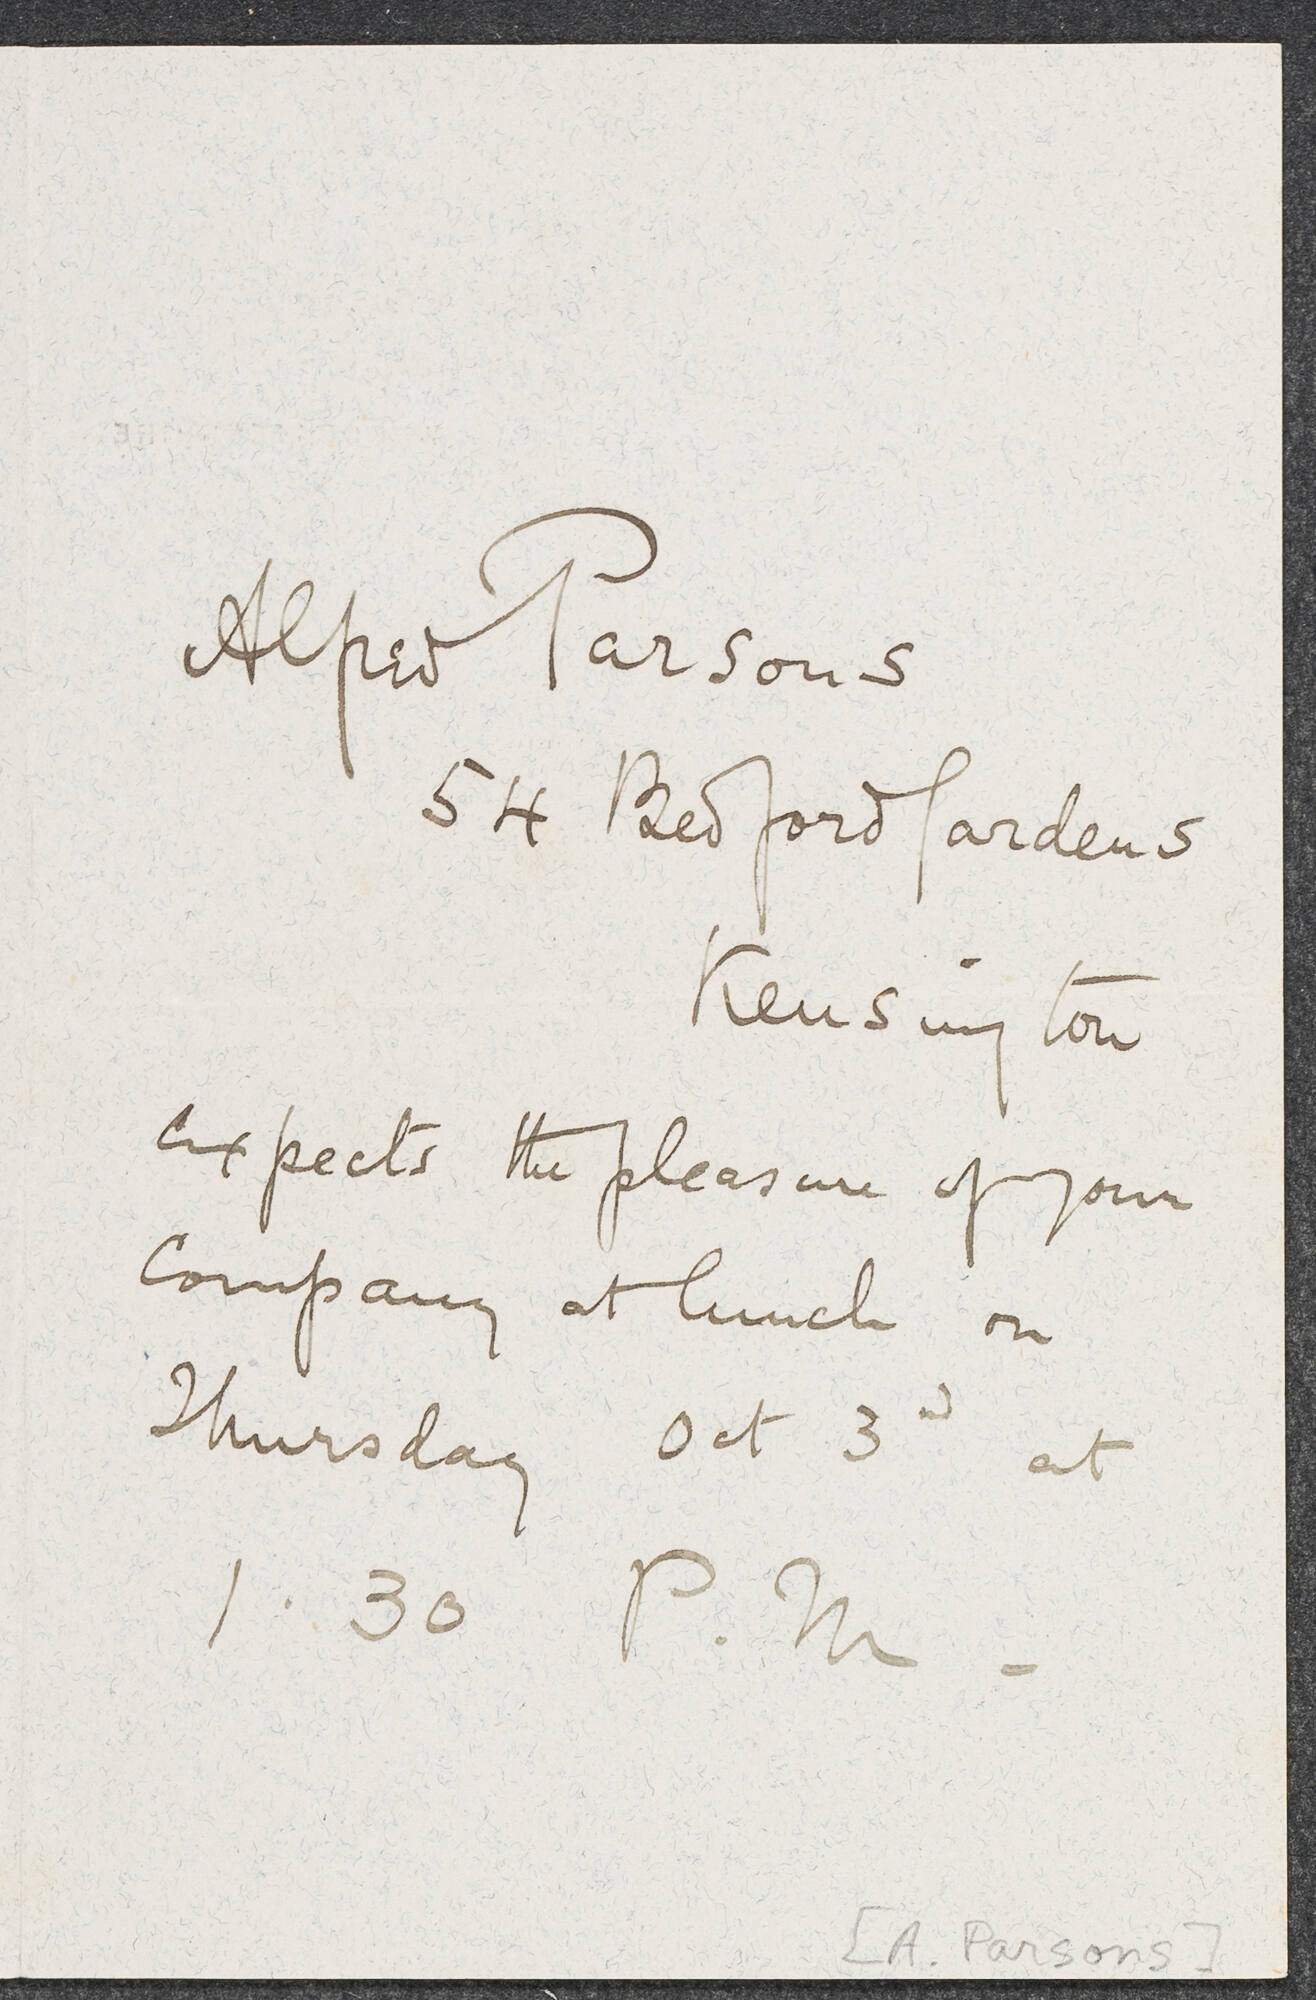 Alfred Parsons
54 Bedford Gardens
Kensington
expects the pleasure of your
Company at lunch on
Thursday Oct 3rd at
1.30 P.M -
[A. Parsons]